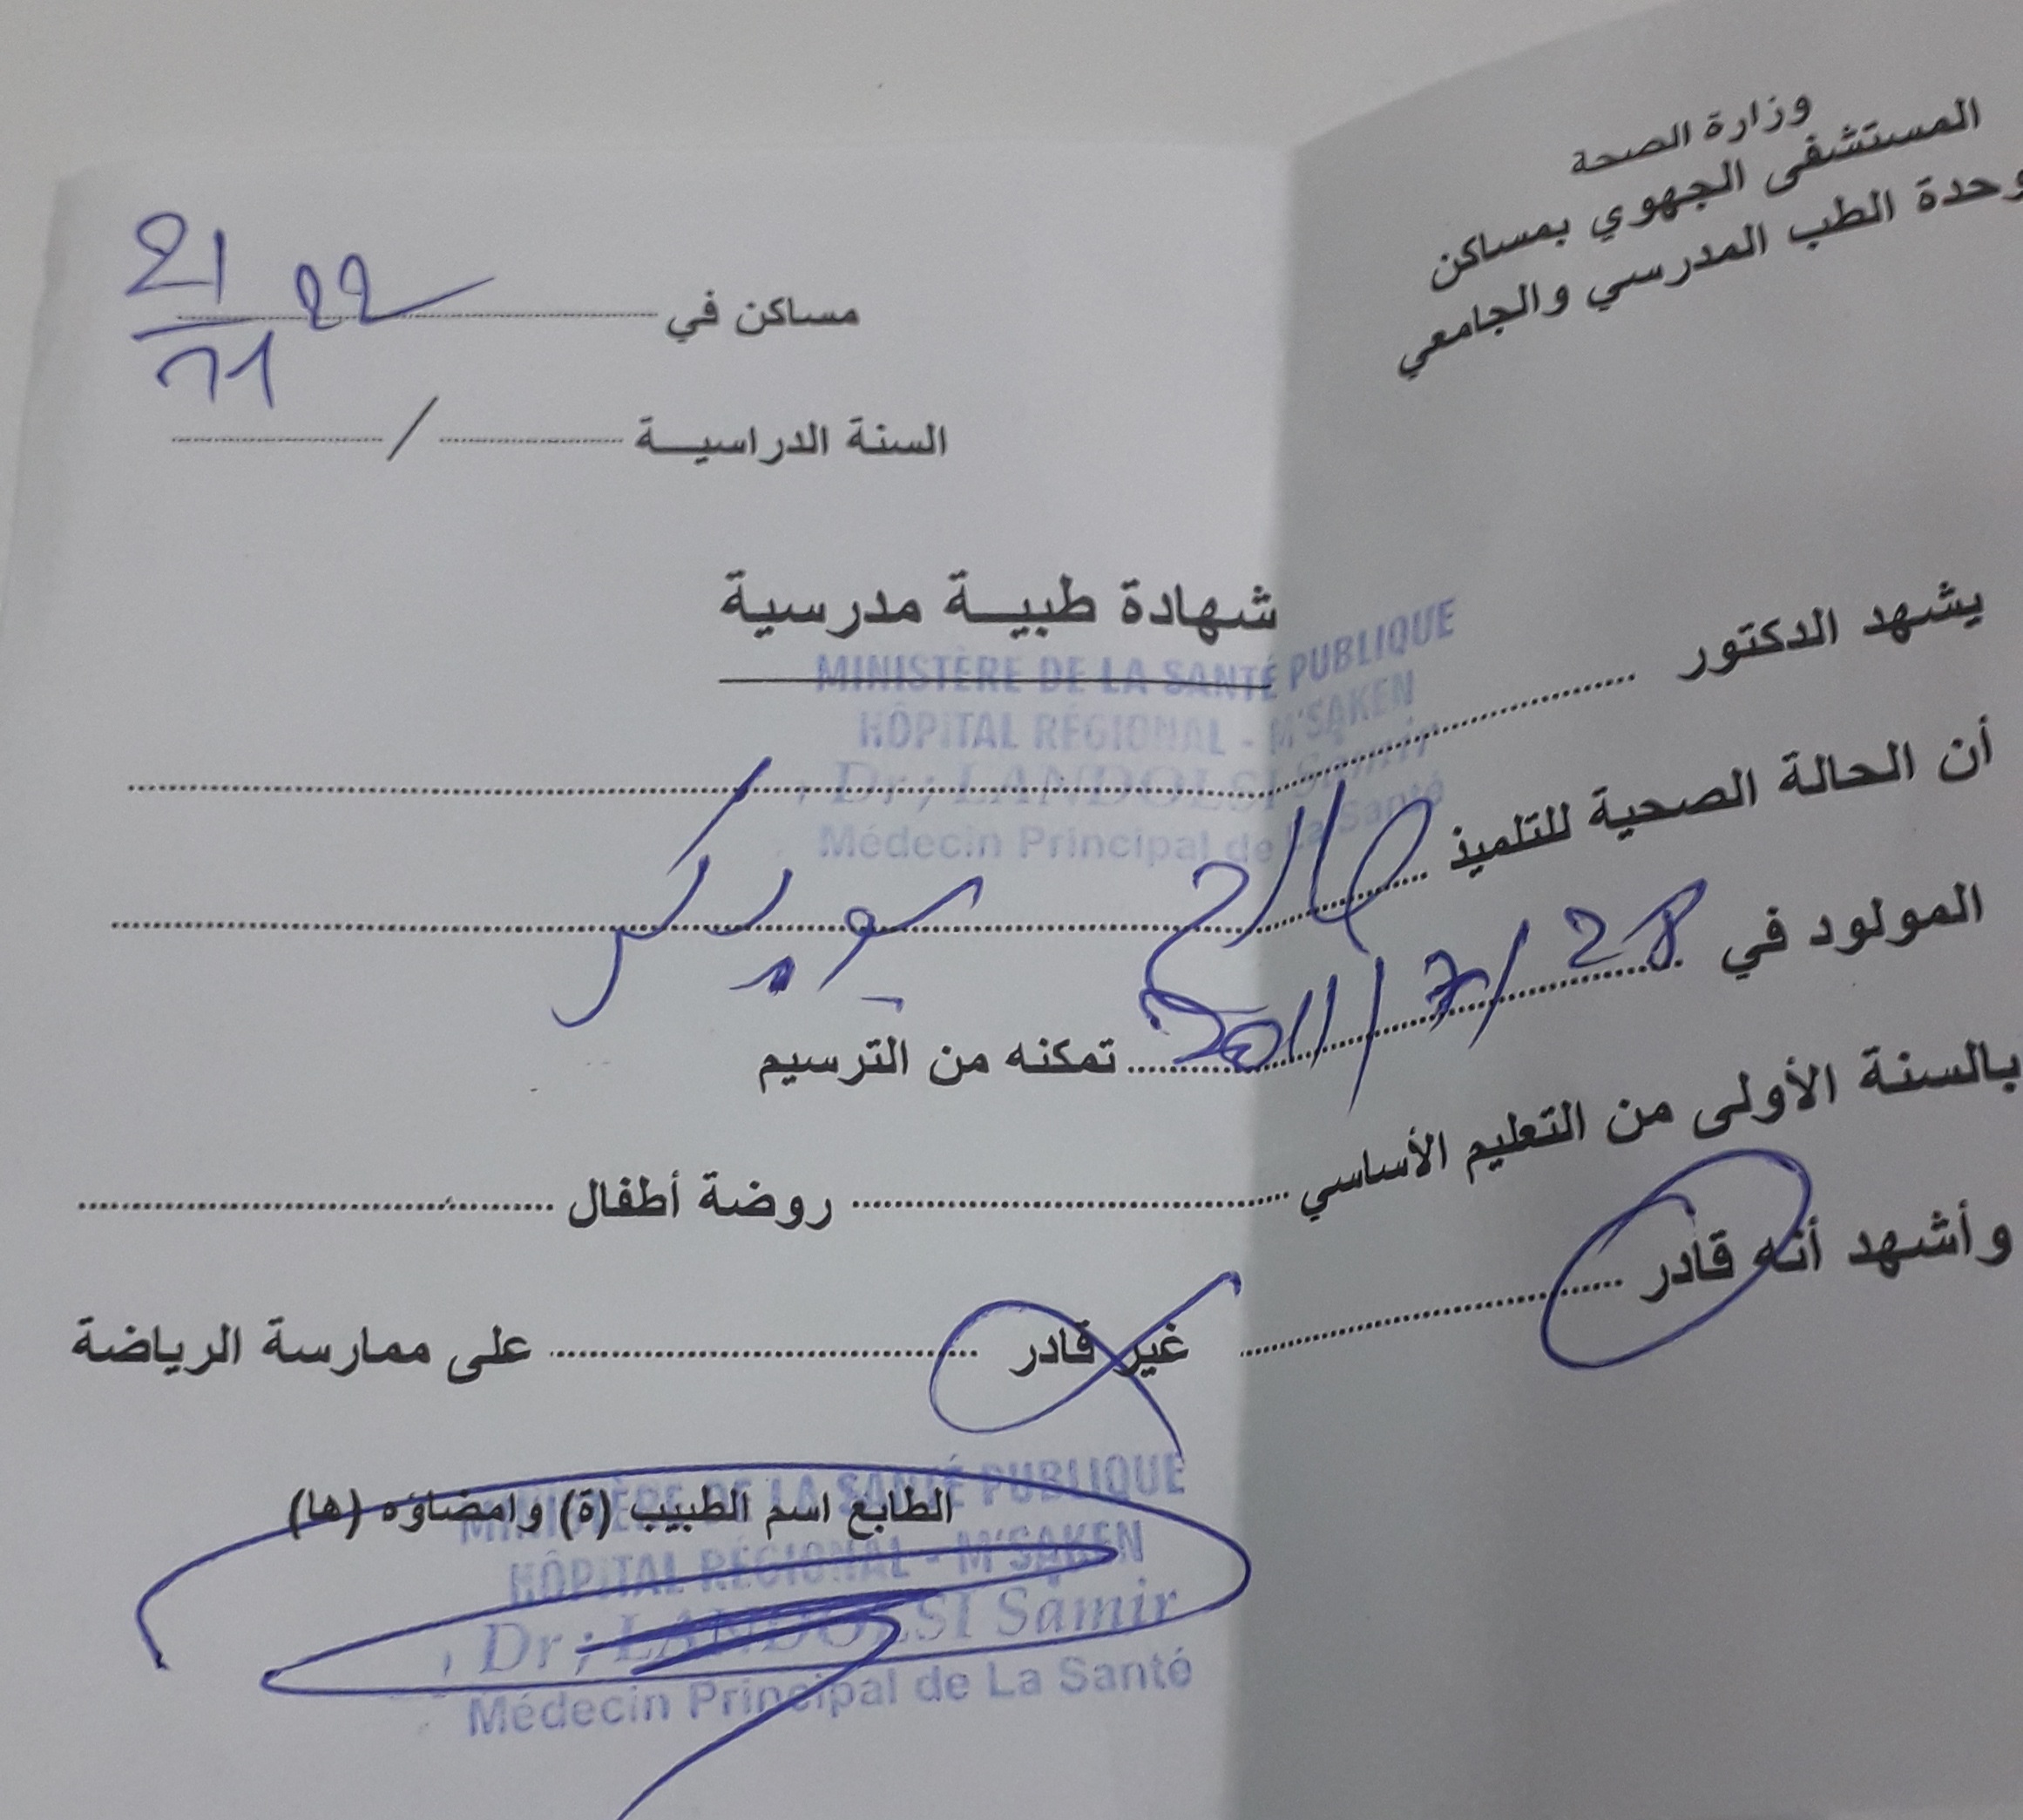 وزارة الصحة
المستشفى الجهوي بمساكن
وحدة الطب المدرسي والجامعي
مساكن في 21/11 22
السنة الدراسيـــة ........ / ........
شهادة طبيـــة مدرسية
MINISTÈRE DE LA SANTÉ PUBLIQUE
HÔPITAL RÉGIONAL - M'SAKEN
Dr ; LANDOLSI Samir
Médecin Principal de La Santé
يشهد الدكتور
أن الحالة الصحية للتلميذ
المولود في 28/7/2011 تمكنه من الترسيم
بالسنة الأولى من التعليم الأساسي ........ روضة أطفال ........
وأشهد أنه قادر ........ غير قادر ........ على ممارسة الرياضة
الطابع اسم الطبيب (ة) وامضاؤه (ها)
MINISTÈRE DE LA SANTÉ PUBLIQUE
HÔPITAL RÉGIONAL - M'SAKEN
Dr ; LANDOLSI Samir
Médecin Principal de La Santé